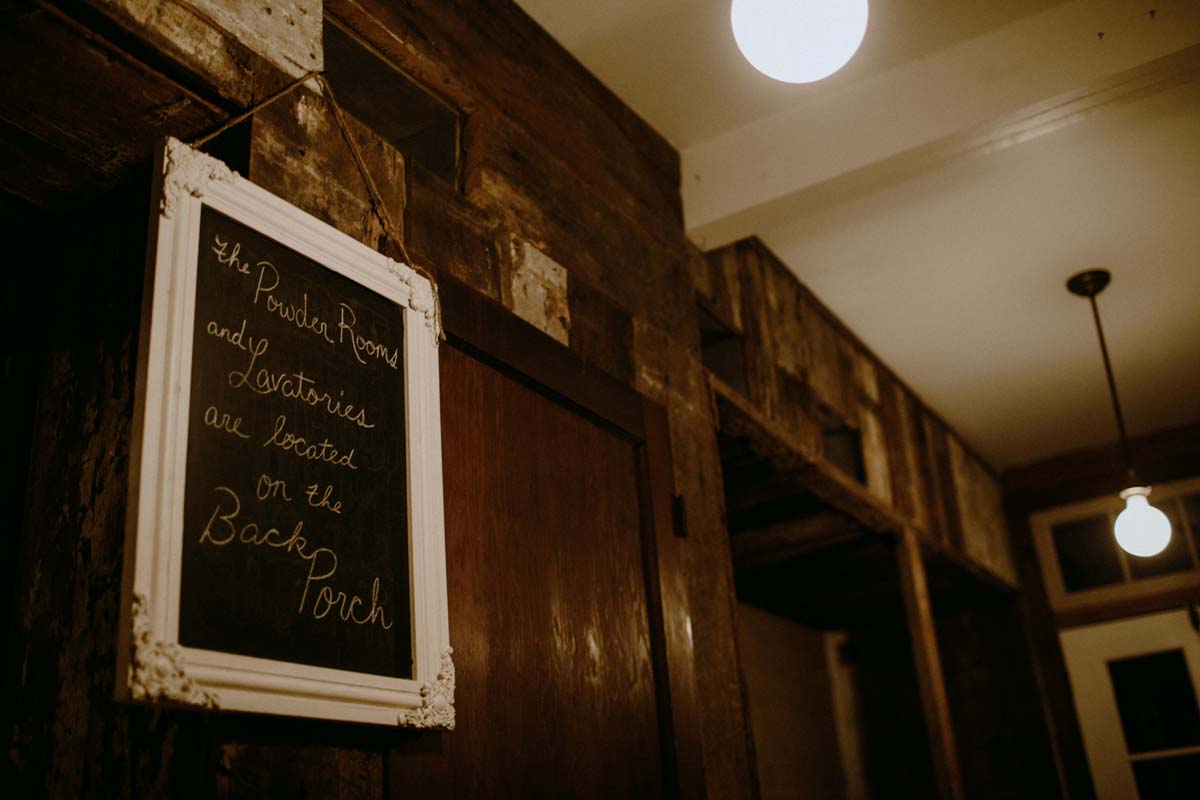 the Powder Rooms
and Lavatories
are located
on the
Back
Porch